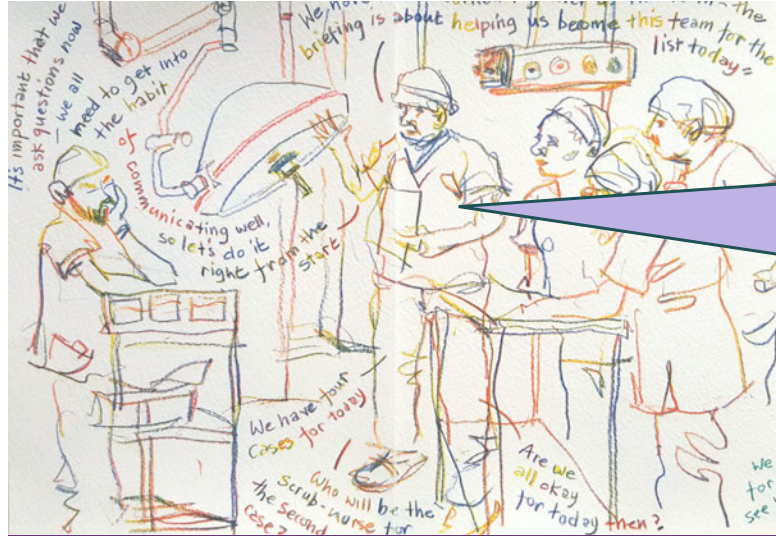 It's important that we
ask questions now
– we all
need to get into
the habit
of
communicating well,
so let's do it
right from the
start
We have
the
briefing is about helping us become this team for the
list today =
We have four
cases for today
Who will be the
scrub-nurse for
the second
case?
Are we
all okay
for today then?
we
for
see